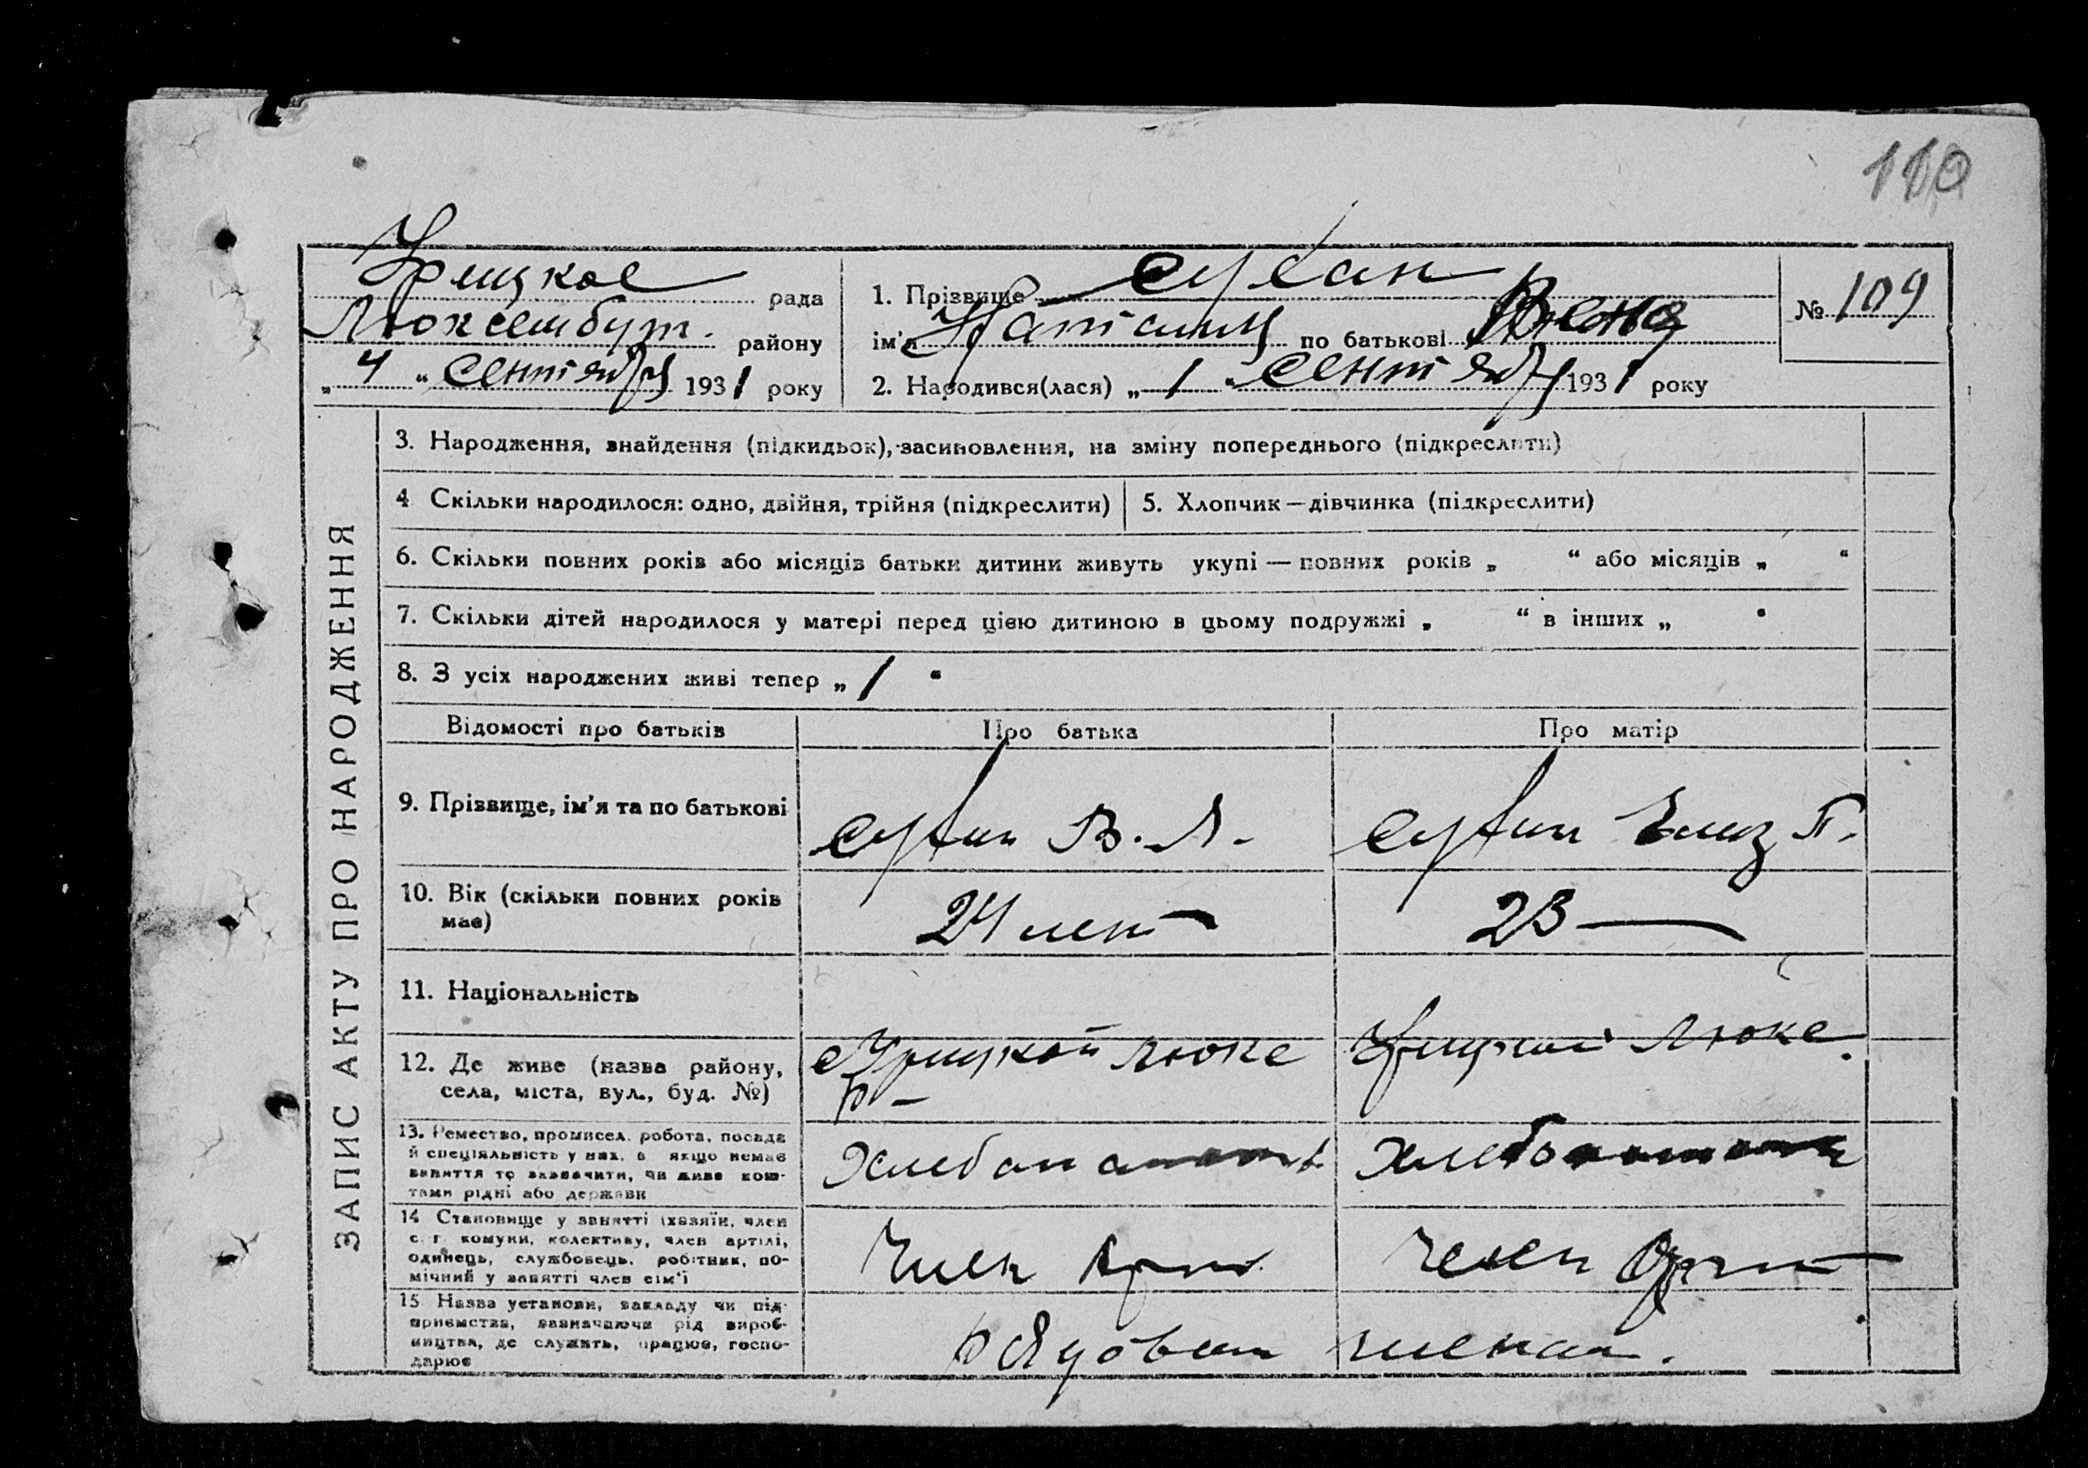 110
Урицкое рада
Люксембург. району
„ 4 “ сентября 1931 року
1. Прізвище Субан
ім'я по батькові
№ 109
2. Народився(лася) „ 1 “ сентября 1931 року
ЗАПИС АКТУ ПРО НАРОДЖЕННЯ
3. Народження, знайдення (підкидьок), засиновлення, на зміну попереднього (підкреслити)
4 Скільки народилося: одно, двійня, трійня (підкреслити)
5. Хлопчик — дівчинка (підкреслити)
6. Скільки повних років або місяців батьки дитини живуть укупі — повних років „ “ або місяців „ “
7. Скільки дітей народилося у матері перед цією дитиною в цьому подружжі „ “ в інших „ “
8. З усіх народжених живі тепер „ 1 “
Відомості про батьків
Про батька
Про матір
9. Прізвище, ім'я та по батькові
В. Л.
Елиз П.
10. Вік (скільки повних років має)
24 лет
23 —
11. Національність
12. Де живе (назва району, села, міста, вул., буд. №)
с Урицкой Люкс
р –
Урицкой Люкс.
13. Ремество, промисел, робота, посада й спеціяльність у них, а якщо немає заняття то зазначити, чи живе коштами рідні або держави
14 Становище у занятті (хазяїн, член с. г. комуни, колективу, член артілі, одинець, службовець, робітник, помічний у занятті член сім'ї
Член Арт.
член Арт
15 Назва установи, закладу чи підприємства, зазначаючи рід виробництва, де служить, працює, господарює
рядовым членам.